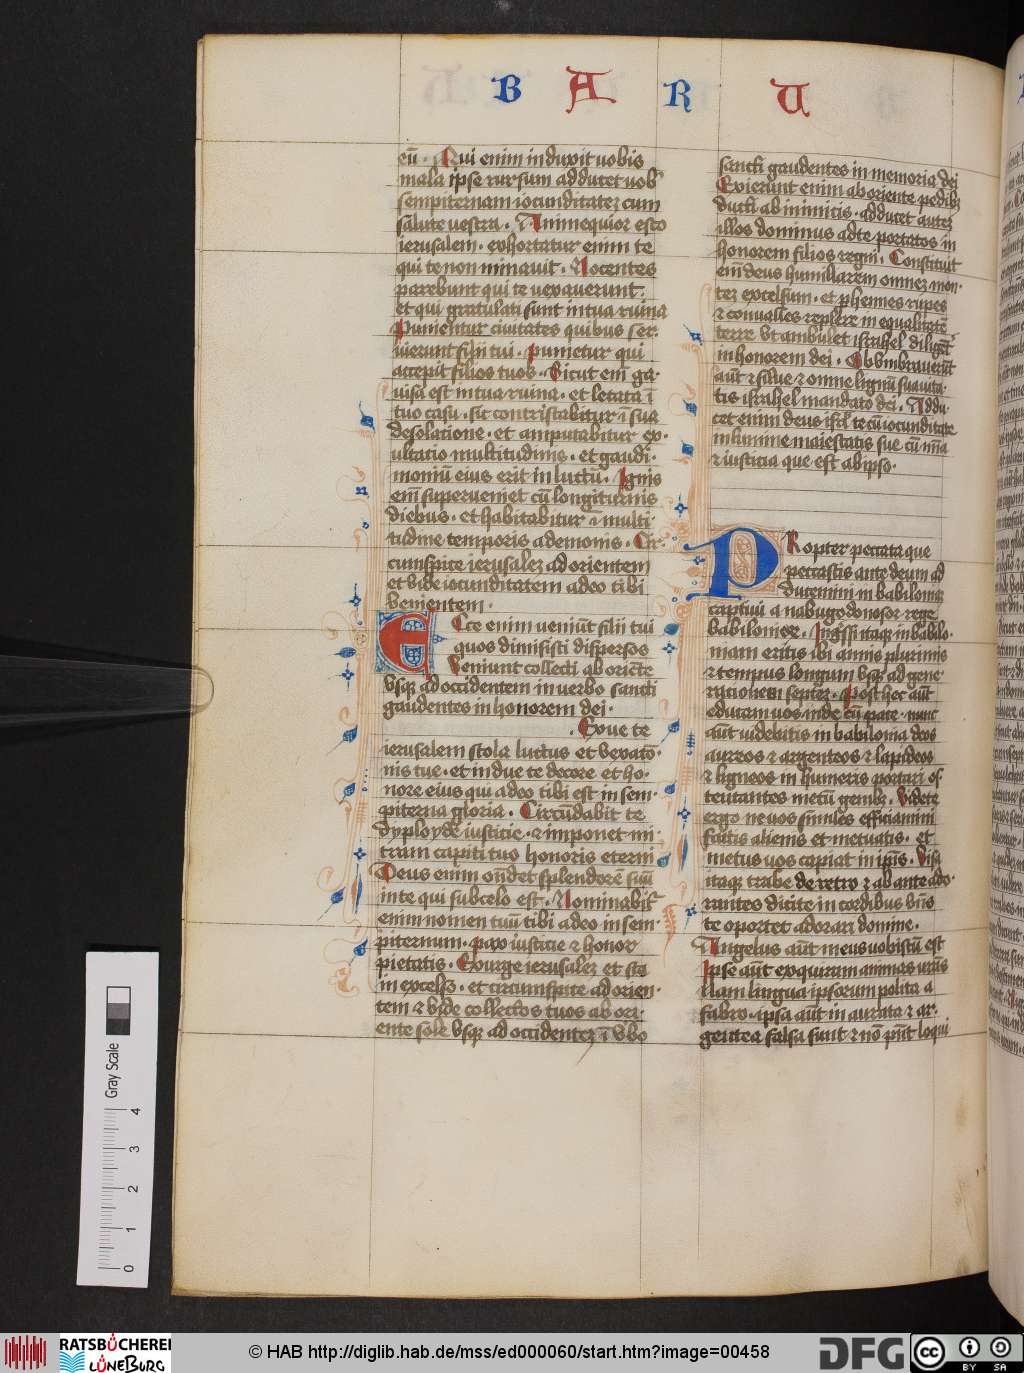 B A R U
eū · Qui enim induxit uobis
mala ipse rursum adducet uobꝰ
sempiternam iocunditatez cum
salute uestra · Animequior esto
ierusalem · exhortatur enim te
qui te non minauit · Nocentes
parebunt qui te uexauerunt ·
et qui gratulati sunt in tua ruina
Punientur ciuitates quibus ser
uierunt filii tui · punietur qui
accepit filios tuos · Sicut em̄ ga
uisa est in tua ruina · et letata ī
tuo casu · sic contristabitur ī sua
desolatione · et amputabitur ex
ultatio multitudinis · et gaudi
moniū eius erit in luctū · Ignis
em̄ superueniet cū longiturnis
diebus · et habitabitur ā multi
tudine temporis a demonis · Cir
cumspice ierusalez ad orientem
et vide iocunditatem a deo tibi
venientem ·
Ecce enim veniūt filii tui
quos dimisisti dispersos
Veniunt collecti ab oriēte
vsqꝫ ad occidentem in uerbo sancti
gaudentes in honorem dei ·
· Exue te
ierusalem stola luctus et vexatō
nis tue · et indue te decore et ho
nore eius qui a deo tibi est in sem
piterna gloria · Circūdabit te
dyployde iusticie · ⁊ imponet mi
tram capiti tuo honoris eterni
Deus enim on̄det splendorē suū
in te qui sub celo est · Nominabit
enim nomen tuū tibi a deo in sem
piternum · pax iusticie ⁊ honor
pietatis · Exurge ierusalez et sta
in excelso · et circumspice ad orien
tem ⁊ vide collectos tuos ab ori
ente sole vsqꝫ ad occidentez ī vbo
sancti gaudentes in memoria dei
Exierunt enim ab oriente pedibꝫ
ducti ab inimicis · adducet autez
illos dominus ad te portatos in
honorem filios regni · Constituit
em̄ deus humiliarem omnez mon
tez excelsum · et perhennes rupes
⁊ conualles replere in equalitatē
terre vt ambulet israhel diligēt
in honorem dei · Obumbrauerūt
aūt ⁊ silue ⁊ omne lignū suauita
tis israhel mandato dei · Addu
cet enim deus isrl̄ te cū iocunditate
in lumine maiestatis sue cū mīa
⁊ iusticia que est ab ipso ·
Propter peccata que
peccastis ante deum ad
ducemini in babiloniam
captiui a nabugodonosor rege
babilonice · Ingr̄ssi itaqꝫ in babilo
niam eritis ibi annis plurimis
⁊ tempus longum vsqꝫ ad gene
rationem septez · Post hec aūt
educam uos inde cū pace · nunc
aūt uidebitis in babilonia deos
aureos ⁊ argenteos ⁊ lapideos
⁊ ligneos in humeris portari os
tentantes metū gentibꝫ · Videte
ergo ne uos similes efficiamini
factis alienis et metuatis · et
metus uos capiat in ip̄is · Visa
itaqꝫ trabe de retro ⁊ ab ante ado
rantes dicite in cordibus vr̄is
te oportet adorari domine ·
Angelus aūt meus uobiscū est
Ipse aūt exquiram animas vr̄as
Nam lingua ipsorum polita a
fabro · ipsa aūt inaurata ⁊ ar
gentea falsa sunt ⁊ nō pn̄t loqui
Gray Scale
0 1 2 3 4
RATSBÜCHEREI
LÜNEBURG
© HAB http://diglib.hab.de/mss/ed000060/start.htm?image=00458
DFG
cc BY SA